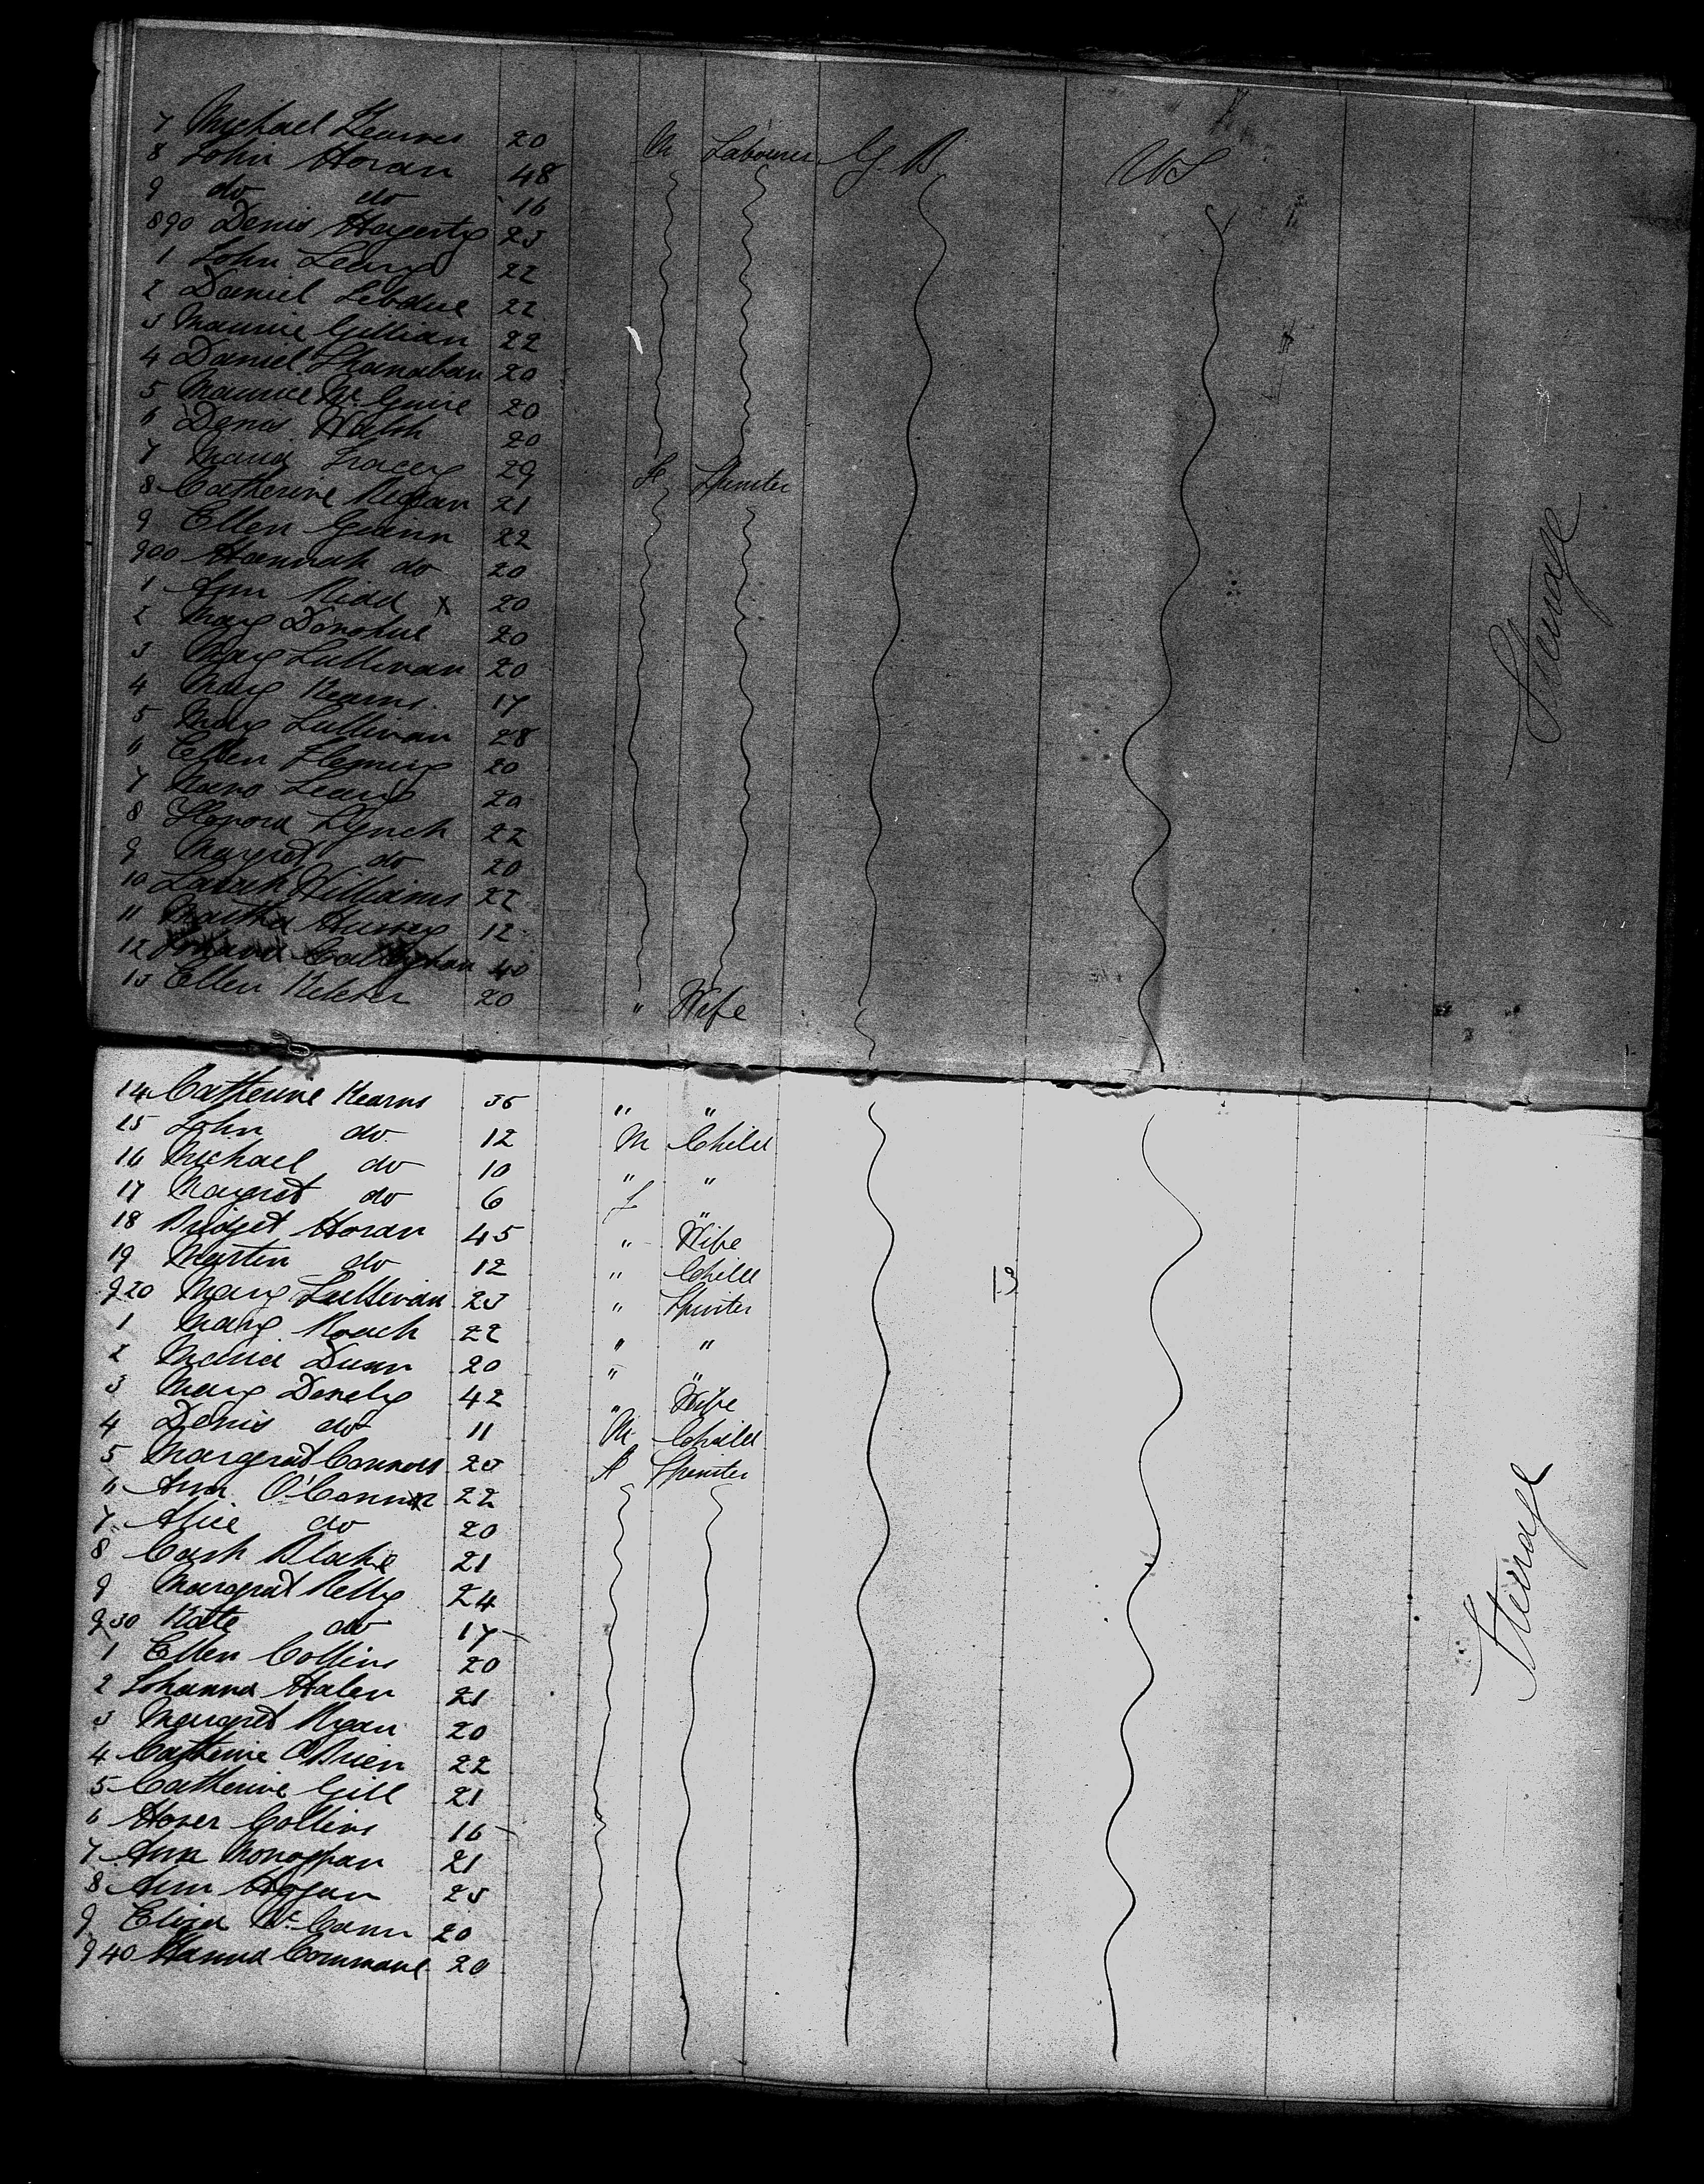 7 Michael Kearns 20 M Labourer G. B US
8 John Horan 48
9 do do 16
890 Denis Hagerty 23
1 John Leary 22
2 Daniel 22
3 Maurice Gillian 22
4 Daniel Shanahan 20
5 Maurice McGuire 20
6 Denis Walsh 20
7 Maria Tracey 29 F Spinster
8 Catherine Regan 21
9 Ellen Guinn 22
900 Hannah do 20
1 Ann Kidd x 20
2 Mary Donohue 20
3 Mary Sullivan 20
4 Mary Kearns 17
5 Mary Sullivan 28
6 Ellen Fleming 20
7 Nano Leary 20
8 Honora Lynch 22
9 Margret do 20
10 Sarah Williams 22
11 Martha Hussey 12
12 Callaghan 40
13 Ellen Keleher 20 " Wife
Steerage
14 Catherine Kearns 35 " "
15 John do 12 M Child
16 Michael do 10 " "
17 Margret do 6 f "
18 Bridget Horan 45 " Wife
19 Martin do 12 " Child 13
920 Mary Sullivan 23 " Spinster
1 Mary Roach 22 " "
2 Maria Dunn 20 " "
3 Mary Donely 42 " Wife
4 Denis do 11 M Child
5 Margrat Connors 23 F Spinster
6 Ann O'Connor 22
7 Alice do 20
8 Cath Blake 21
9 Margrat Kelly 24
930 Kate do 17
1 Ellen Collins 20
2 Johanna Halen 21
3 Margret Ryan 20
4 Catherine OBrien 22
5 Catherine Gill 21
6 Honer Collins 16
7 Ann Monaghan 21
8 Ann Hogan 25
9 Eliza McCann 20
940 Hanna Commane 20
Steerage